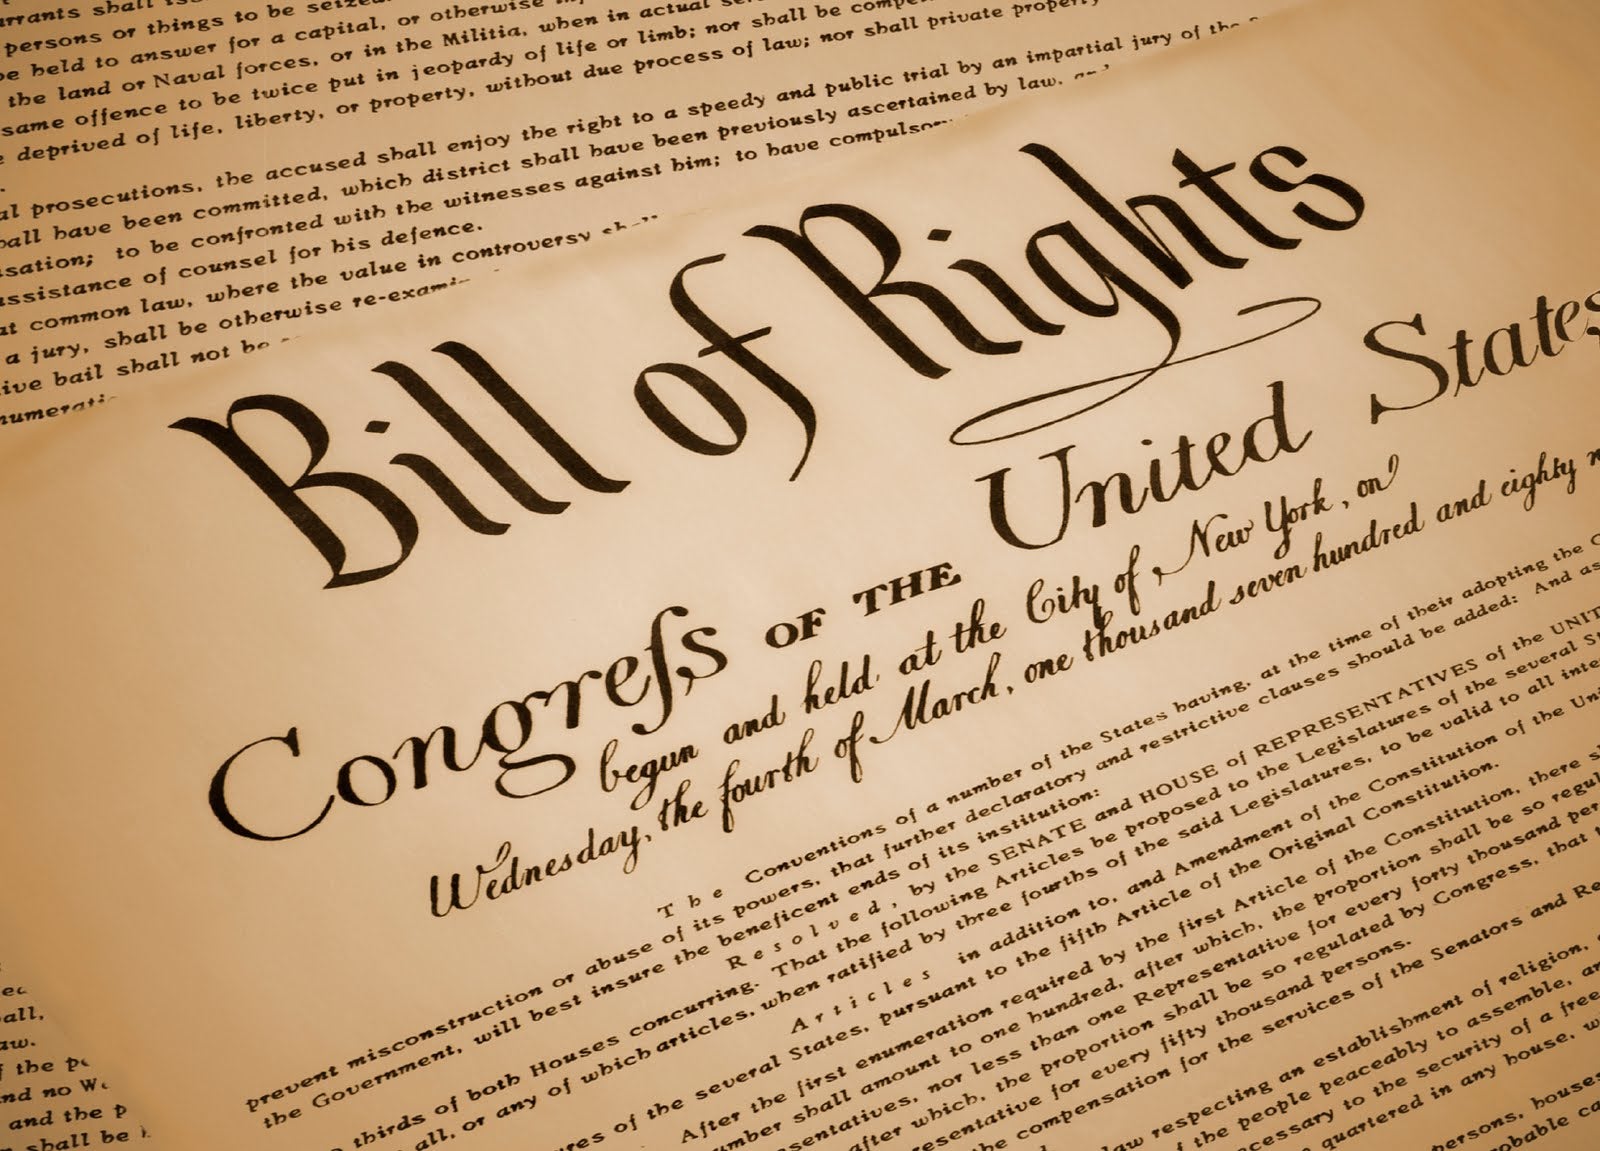 arrants shall
persons or things to be seized.
be held to answer for a capital, or otherwise
the land or Naval forces, or in the Militia, when in actual
same offence to be twice put in jeopardy of life or limb; nor shall be
deprived of life, liberty, or property, without due process of law; nor shall private property
al prosecutions, the accused shall enjoy the right to a speedy and public trial by an impartial jury of the
hall have been committed, which district shall have been previously ascertained by law,
sation; to be confronted with the witnesses against him; to have compulsory
assistance of counsel for his defence.
at common law, where the value in controversy shall
a jury, shall be otherwise re-exami
ive bail shall not be
numerati
Bill of Rights
Congreſs OF THE United States
begun and held at the City of New York, on
Wednesday, the fourth of March, one thousand seven hundred and eighty n
The Conventions of a number of the States having, at the time of their adopting the C
prevent misconstruction or abuse of its powers, that further declaratory and restrictive clauses should be added: And as
the Government, will best insure the beneficent ends of its institution:
Resolved, by the SENATE and HOUSE of REPRESENTATIVES of the UNIT
thirds of both Houses concurring. That the following Articles be proposed to the Legislatures of the several St
all, or any of which articles, when ratified by three fourths of the said Legislatures, to be valid to all inte
Articles in addition to, and Amendment of the Constitution of the Uni
ures of the several States, pursuant to the fifth Article of the Original Constitution.
After the first enumeration required by the first Article of the Constitution, there s
umber shall amount to one hundred, after which, the proportion shall be so regul
sentatives, nor less than one Representative for every forty thousand per
after which, the proportion shall be so regulated by Congress, that t
resentative for every fifty thousand persons.
the compensation for the services of the Senators and Re
law respecting an establishment of religion,
f the people peaceably to assemble, an
ecessary to the security of a free
quartered in any house, w
persons, houses
robable ca
all,
aw.
f the pe
nd no Wa
and the p
shall be